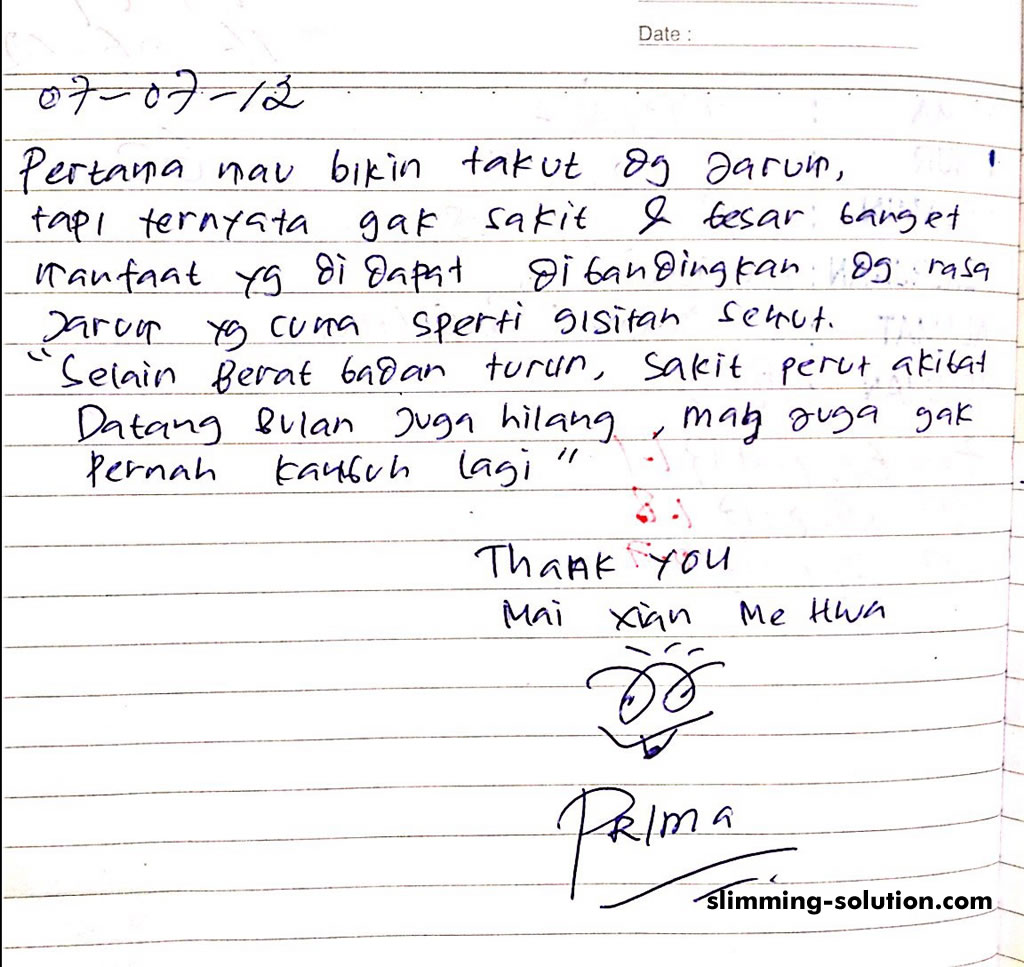 Date :
07-07-12
Pertama mau bikin takut dg Jarum,
tapi ternyata gak sakit & besar banget
manfaat yg di dapat di bandingkan dg rasa
Jarum yg cuma sperti gisitan semut.
"Selain Berat badan turun, sakit perut akibat
Datang Bulan Juga hilang, mag Juga gak
Pernah kambuh lagi"
Thank You
Mai Xian Me Hwa
PRIMA
slimming-solution.com